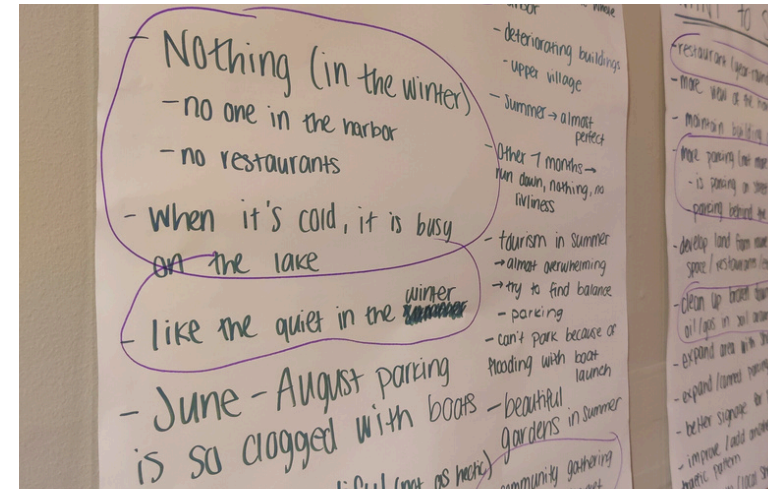 - Nothing (in the winter)
- no one in the harbor
- no restaurants
- When it's cold, it is busy
on the lake
- like the quiet in the winter
- June - August parking
is so clogged with boats
(not as hectic)
- deteriorating buildings
- upper village
- Summer → almost
perfect
- Other 7 months →
run down, nothing, no
livliness
- tourism in summer
→ almost overwhelming
→ try to find balance
- parking
- can't park because of
flooding with boat
launch
- beautiful
gardens in summer
community gathering
to
- restaurant (year-round
- more view of the
- maintain building
- more parking (not more
- is parking on street
- parking behind the
- develop land from
space / restaurants /
- clean up
oil/gas in soil
- expand area with
- expand / correct parking
- better signage for
- improve / add
traffic pattern